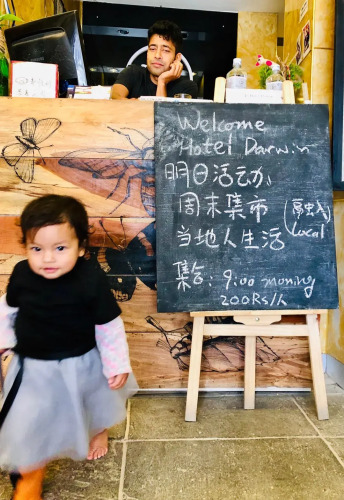 Welcome
Hotel Darwin
明日活动:
周末集市 (融入
当地人生活 Local)
集合: 9:00 moning
200Rs/人